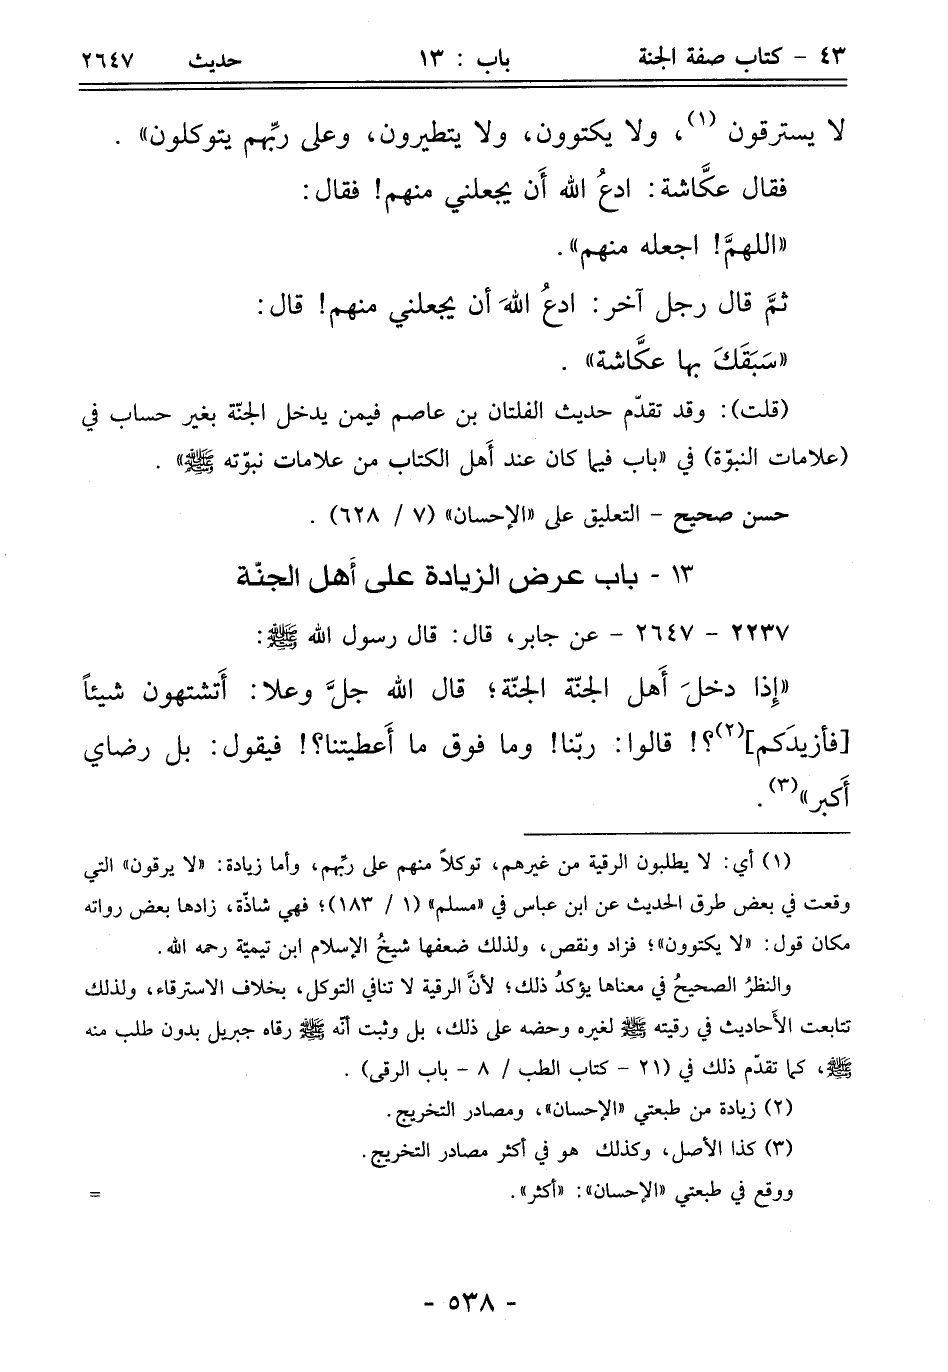 ٤٣ - كتاب صفة الجنة باب : ١٣ حديث ٢٦٤٧
لا يسترقون (١)، ولا يكتوون، ولا يتطيرون، وعلى ربِّهم يتوكلون» .
فقال عكَّاشة: ادعُ الله أَن يجعلني منهم! فقال:
«اللهمَّ! اجعله منهم».
ثمَّ قال رجل آخر: ادعُ اللهَ أن يجعلني منهم! قال:
«سَبَقَكَ بها عكَّاشة» .
(قلت): وقد تقدّم حديث الفلتان بن عاصم فيمن يدخل الجنّة بغير حساب في
(علامات النبوّة) في «باب فيما كان عند أَهل الكتاب من علامات نبوّته ﷺ» .
حسن صحيح - التعليق على «الإحسان» (٧ / ٦٢٨) .
١٣ - باب عرض الزيادة على أَهل الجنّة
٢٢٣٧ - ٢٦٤٧ - عن جابر، قال: قال رسول الله ﷺ:
«إِذا دخلَ أَهل الجنّة الجنّة؛ قال الله جلَّ وعلا: أَتشتهون شيئاً
[فأزيدَكم](٢)؟! قالوا: ربّنا! وما فوق ما أَعطيتنا؟! فيقول: بل رضاي
أَكبر»(٣).
(١) أي: لا يطلبون الرقية من غيرهم، توكلاً منهم على ربِّهم، وأما زيادة: «لا يرقون» التي
وقعت في بعض طرق الحديث عن ابن عباس في «مسلم» (١ / ١٨٣)؛ فهي شاذّة، زادها بعض رواته
مكان قول: «لا يكتوون»؛ فزاد ونقص، ولذلك ضعفها شيخُ الإسلام ابن تيميّة رحمه الله.
والنظرُ الصحيحُ في معناها يؤكدُ ذلك؛ لأنَّ الرقية لا تنافي التوكل، بخلاف الاسترقاء، ولذلك
تتابعت الأَحاديث في رقيته ﷺ لغيره وحضه على ذلك، بل وثبت أنّه ﷺ رقاه جبريل بدون طلب منه
ﷺ، كما تقدّم ذلك في (٢١ - كتاب الطب / ٨ - باب الرقى) .
(٢) زيادة من طبعتي «الإحسان»، ومصادر التخريج.
(٣) كذا الأصل، وكذلك هو في أكثر مصادر التخريج.
ووقع في طبعتي «الإحسان»: «أكثر». =
- ٥٣٨ -